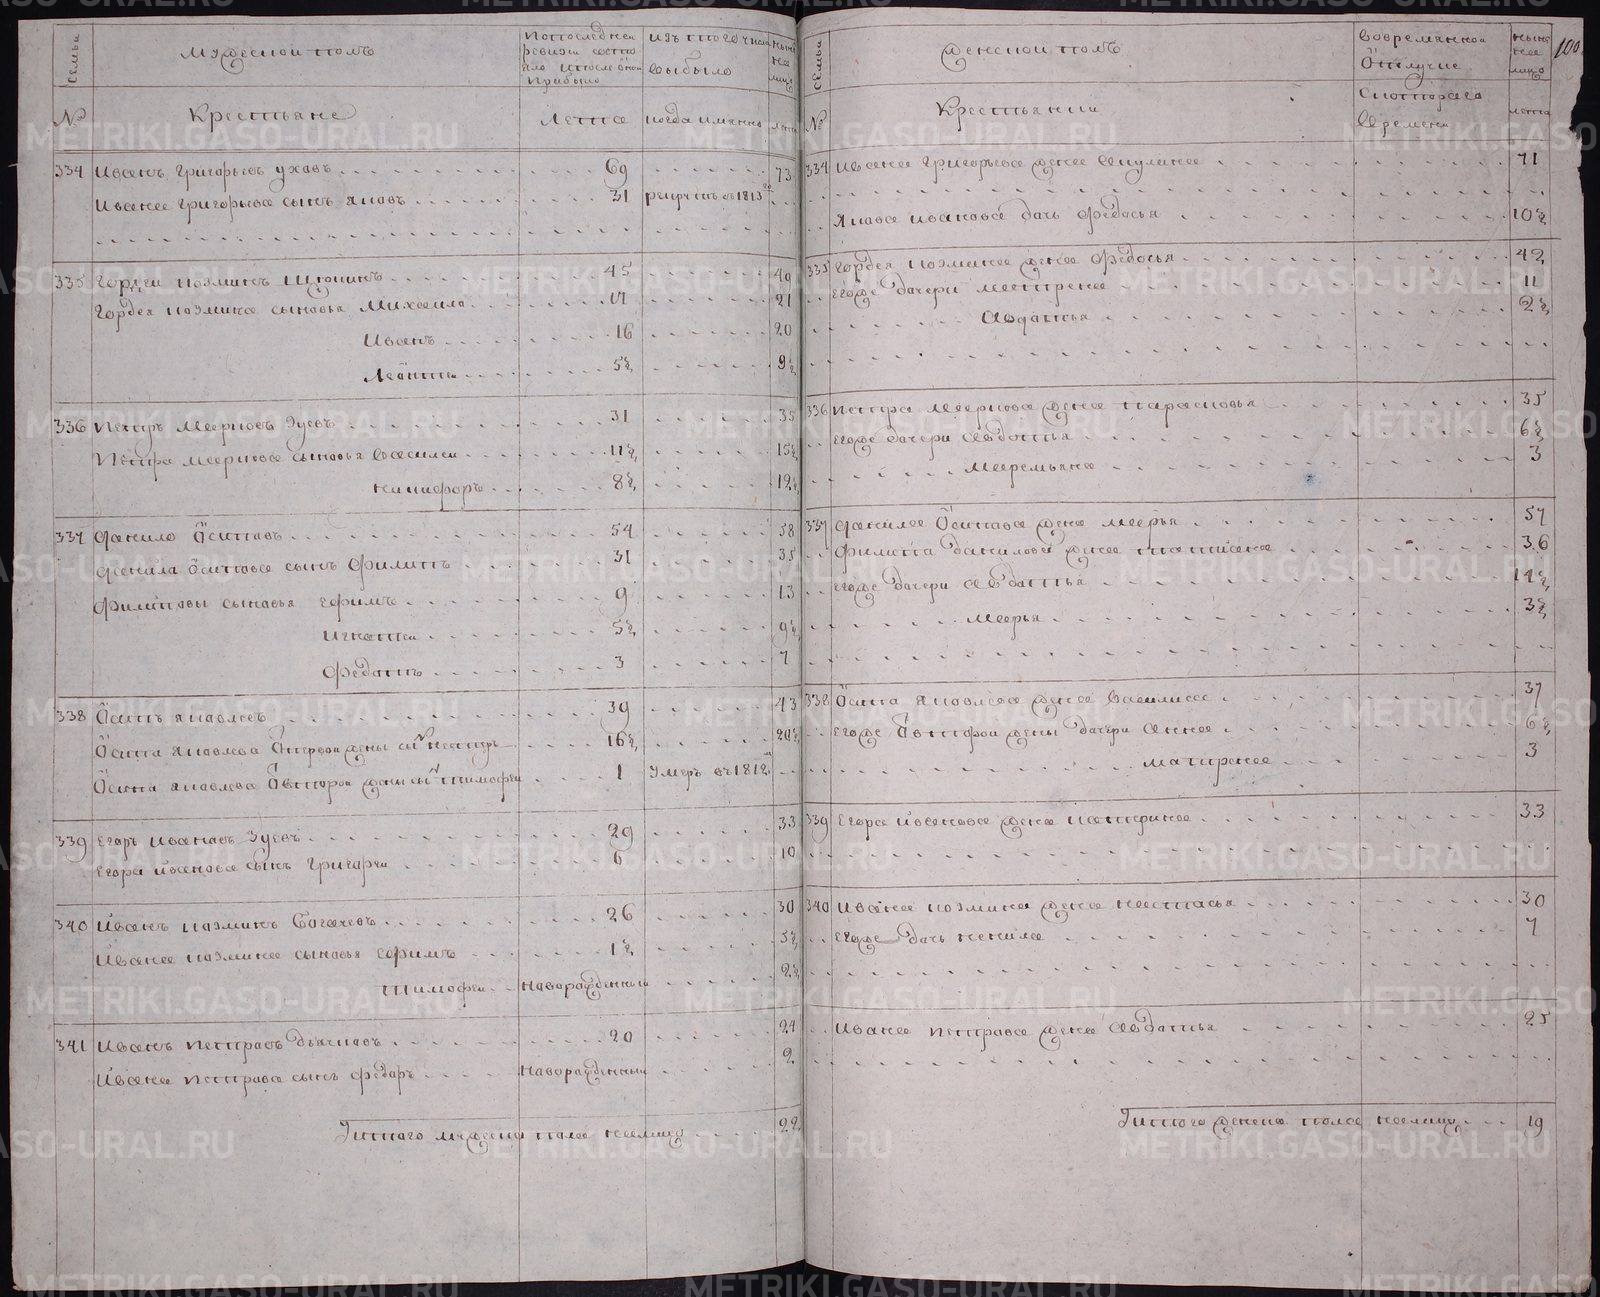 Семьи
Мужескои полъ
По последнеи ревизии состояло и после оной прибыло
изъ того числа выбыло
ныне на лицо
№
Крестьяне
Лета
когда имянно
лета
334 Иванъ Григорьевъ Ухавъ 69 73
Ивана Григорьева сынъ Яковъ 31 рекрутъ въ 1813
335 Гордеи Козминъ 45 49
Гордея Козмина сыновья Михаила 17 21
Иванъ 16 20
Леонтеи 5½ 9½
336 Петръ Марковъ Зуевъ 31 35
Петра Маркова сыновья Василеи 11½ 15½
Никифоръ 8½ 12½
337 Данило Осиповъ 54 58
Данила Осипова сынъ Филипъ 31 35
Филиповы сыновья Ефимъ 9 13
Игнатеи 5½ 9½
Федотъ 3 7
338 Осипъ Яковлевъ 39 43
Осипа Яковлева Первои жены сынъ Петръ 16½ 20½
Осипа Яковлева Второи жены сынъ Тимофеи 1 Умеръ въ 1812
339 Егоръ Ивановъ Зуевъ 29 33
Егора Иванова сынъ Григореи 6 10
340 Иванъ Козминъ Богачевъ 26 30
Ивана Козмина сыновья Ефимъ 1½ 5½
Тимофеи Наворожденныи 2½
341 Иванъ Петровъ Дьячковъ 20 24
Ивана Петрова сынъ Федаръ Наворожденныи 2
Итого мужеска пола налицо 22
Семьи
Женскои полъ
Вовременнои Отлучке
ныне на лицо
100
№
Крестьянки
С котораго Времени
лета
334 Ивана Григорьева жена Акулина 71
Якова Иванова дочь Федосья 10½
335 Гордея Козмина жена Федосья 42
Егоже дачери Матрена 11
Авдатья 2½
336 Петра Маркова жена Парасковья 35
Егоже дачери Авдотья 6½
Маремьяна 3
337 Данила Осипава жена Марья 57
Филипа Данилова жена Татияна 36
Егоже дачери Авдатья 14½
Марья 3½
338 Осипа Яковлева жена Василиса 37
Егоже Второи жены дачери Анна 6½
Матрена 3
339 Егора Иванова жена Катерина 33
340 Ивана Козмина жена Настасья 30
Егоже дачь Ненила 7
Ивана Петрова жена Авдатья 25
Итого женска пола налицо 19
METRIKI.GASO-URAL.RU